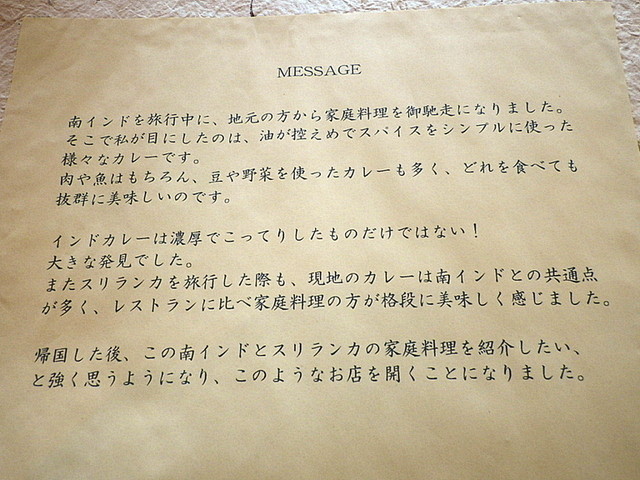 MESSAGE
南インドを旅行中に、地元の方から家庭料理を御馳走になりました。
そこで私が目にしたのは、油が控えめでスパイスをシンプルに使った
様々なカレーです。
肉や魚はもちろん、豆や野菜を使ったカレーも多く、どれを食べても
抜群に美味しいのです。
インドカレーは濃厚でこってりしたものだけではない！
大きな発見でした。
またスリランカを旅行した際も、現地のカレーは南インドとの共通点
が多く、レストランに比べ家庭料理の方が格段に美味しく感じました。
帰国した後、この南インドとスリランカの家庭料理を紹介したい、
と強く思うようになり、このようなお店を開くことになりました。